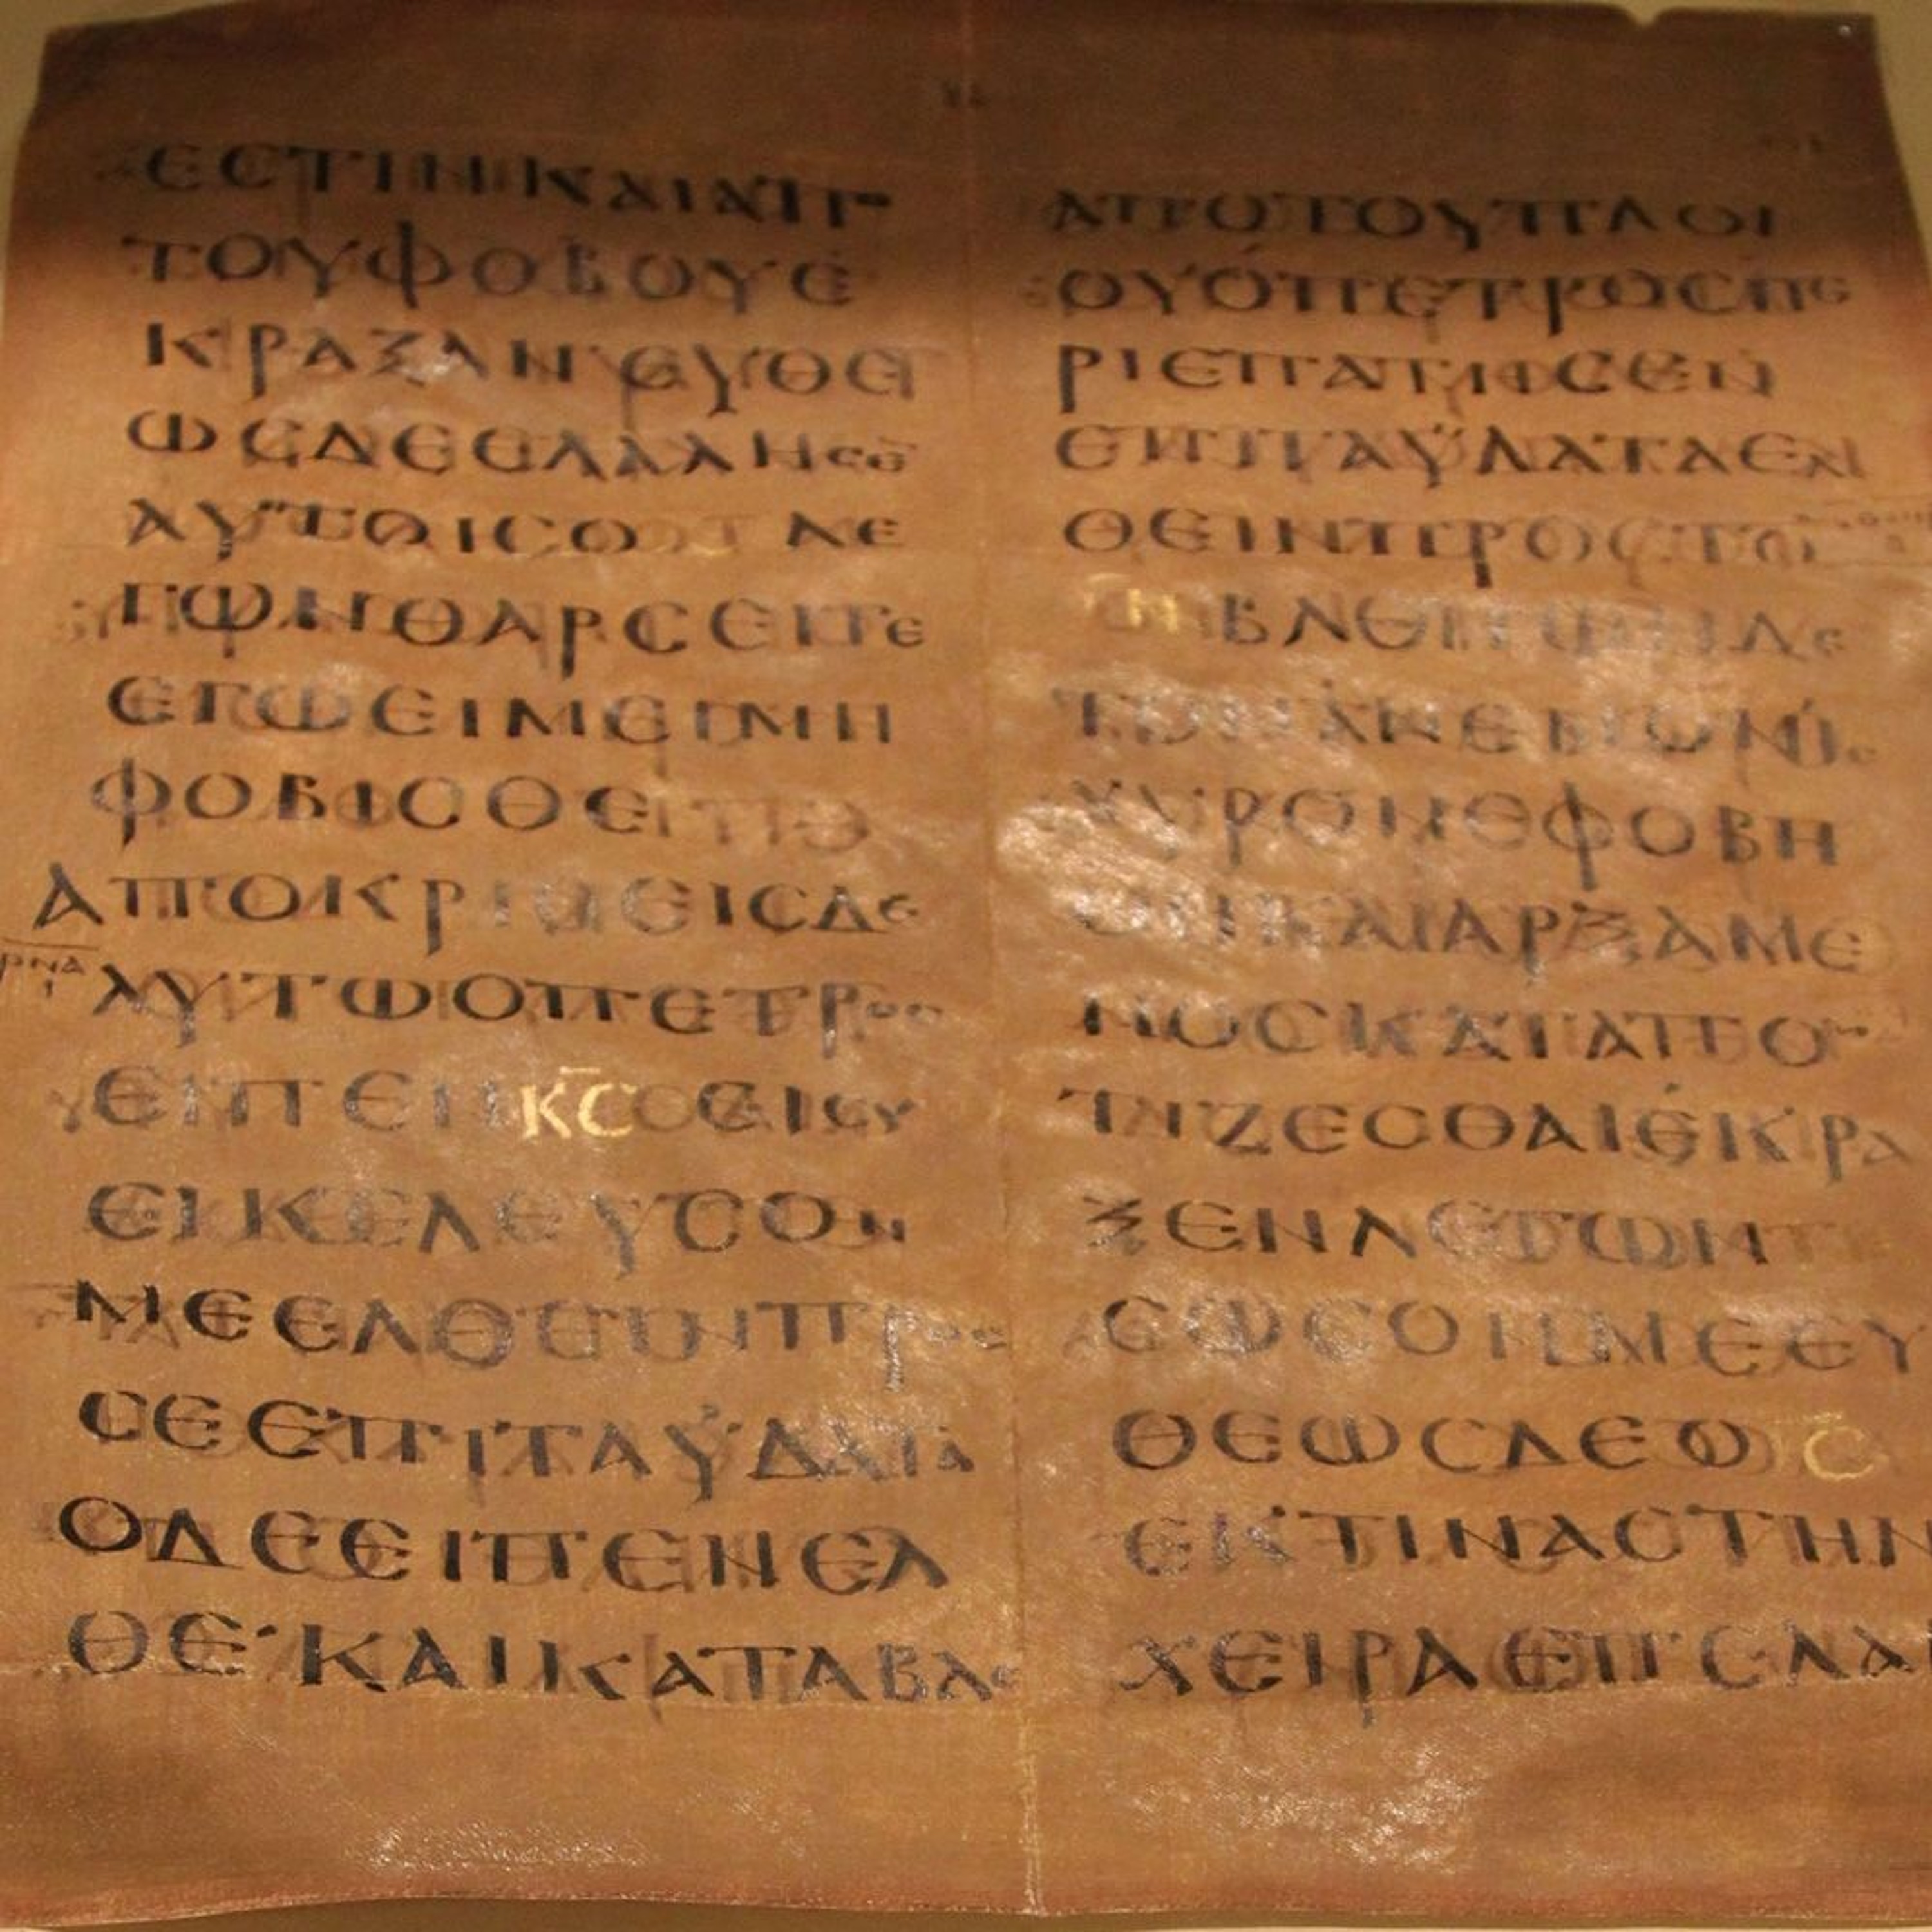 ΕϹΤΙΝΚΑΙΑΠΟ
ΤΟΥΦΟΒΟΥΕ
ΚΡΑΞΑΝΕΥΘΕ
ΩϹΔΕΕΛΑΛΗϹΕ
ΑΥΤΟΙϹΟ ΛΕ
ΓΩΝΘΑΡϹΕΙΤΕ
ΕΓΩΕΙΜΕΙΜΗ
ΦΟΒΙϹΘΕ
ΑΠΟΚΡΙΘΕΙϹΔΕ
ΡΝΑ
ΑΥΤΩΟΠΕΤΡΟϹ
ΕΙΠΕΝΚ̅Ϲ̅ΕΙϹΥ
ΕΙΚΕΛΕΥϹΟΝ
ΜΕΕΛΘΕΙΝΠΡΟϹ
ϹΕΕΠΙΤΑΫΔΑΤΑ
ΟΔΕΕΙΠΕΝΕΛ
ΘΕ·ΚΑΙΚΑΤΑΒΑϹ
ΑΠΟΤΟΥΠΛΟΙ
ΟΥΟΠΕΤΡΟϹΠΕ
ΡΙΕΠΑΤΗϹΕΝ
ΕΠΙΤΑΫΔΑΤΑΕΛ
ΘΕΙΝΠΡΟϹΤΟΝ
Ι̅Ν̅ΒΛΕΠΩΝΔΕ
ΤΟΝΑΝΕΜΟΝΙϹ
ΧΥΡΟΝΕΦΟΒΗ
ΘΗΚΑΙΑΡΞΑΜΕ
ΝΟϹΚΑΤΑΠΟΝ
ΤΙΖΕϹΘΑΙΕΚΡΑ
ΞΕΝΛΕΓΩΝ
ϹΩϹΟΝΜΕΕΥ
ΘΕΩϹΔΕΟΙ̅Ϲ̅
ΕΚΤΙΝΑϹΤΗΝ
ΧΕΙΡΑΕΠΕΛΑ